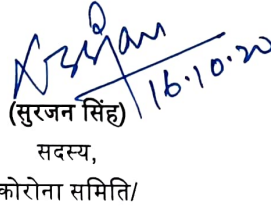 16.10.20
(सुरजन सिंह)
सदस्य,
कोरोना समिति/